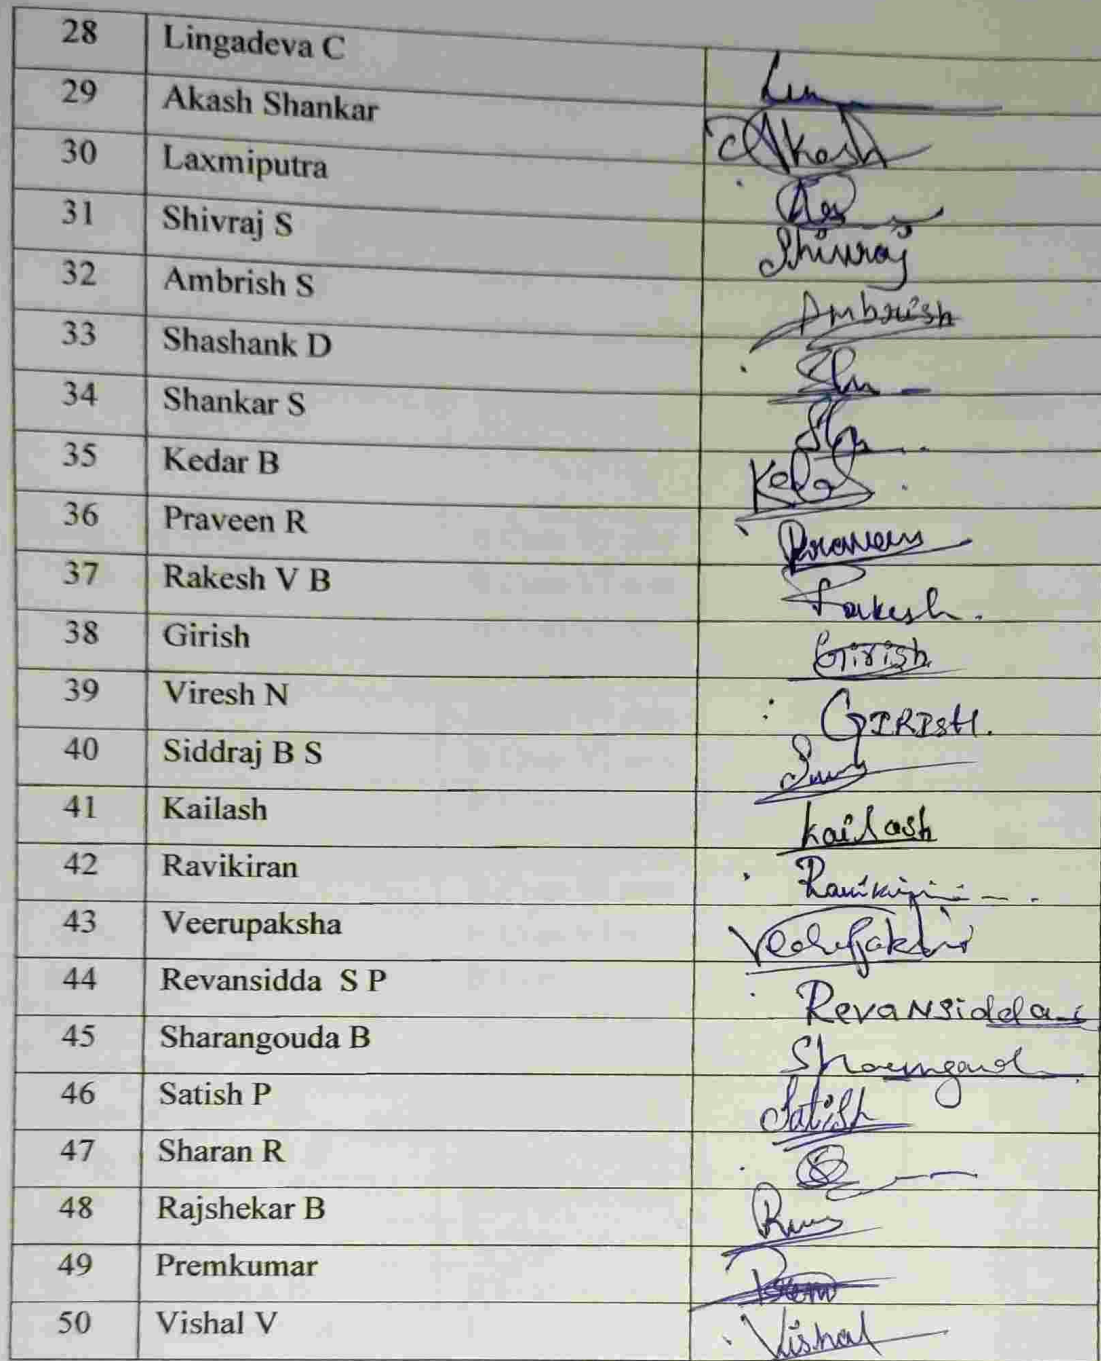 28 Lingadeva C
29 Akash Shankar Akash
30 Laxmiputra
31 Shivraj S Shivraj
32 Ambrish S Ambrish
33 Shashank D
34 Shankar S
35 Kedar B
36 Praveen R Praveen
37 Rakesh V B Rakesh.
38 Girish Girish
39 Viresh N GIRISH.
40 Siddraj B S
41 Kailash Kailash
42 Ravikiran
43 Veerupaksha
44 Revansidda S P Revansidda
45 Sharangouda B
46 Satish P Satish
47 Sharan R
48 Rajshekar B
49 Premkumar Prem
50 Vishal V Vishal